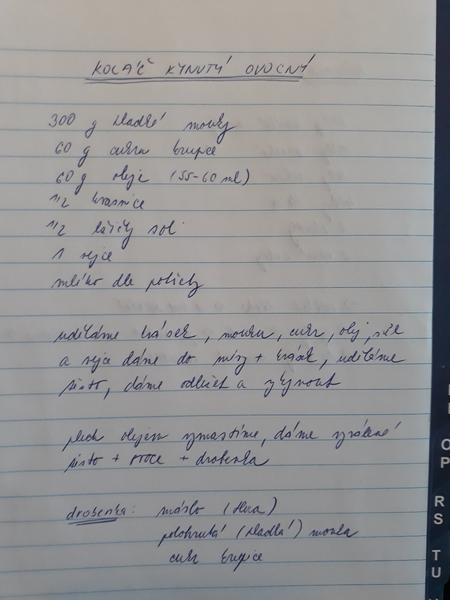 KOLÁČ KYNUTÝ OVOCNÝ
300 g hladké mouky
60 g cukru krupce
60 g oleje (55-60 ml)
1/2 kvasnice
1/2 lžičky soli
1 vejce
mléko dle potřeby
uděláme kvásek, mouku, cukr, olej, sůl
a vejce dáme do mísy + kvásek, uděláme
těsto, dáme odležet a vykynout
plech olejem vymastíme, dáme vyválené
těsto + ovoce + drobenka
drobenka: máslo (Hera)
polohrubá (hladká) mouka
cukr krupice
OP
RS
TU